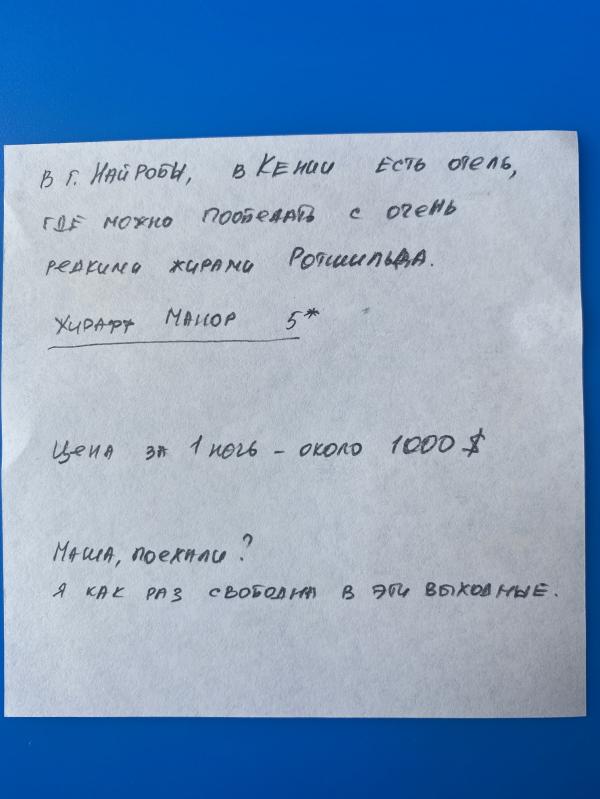 В г. Найроби, в Кении есть отель,
где можно пообедать с очень
редкими жирами Ротшильда.
Жираф Манор 5*
Цена за 1 ночь - около 1000 $
Маша, поехали?
Я как раз свободна в эти выходные.